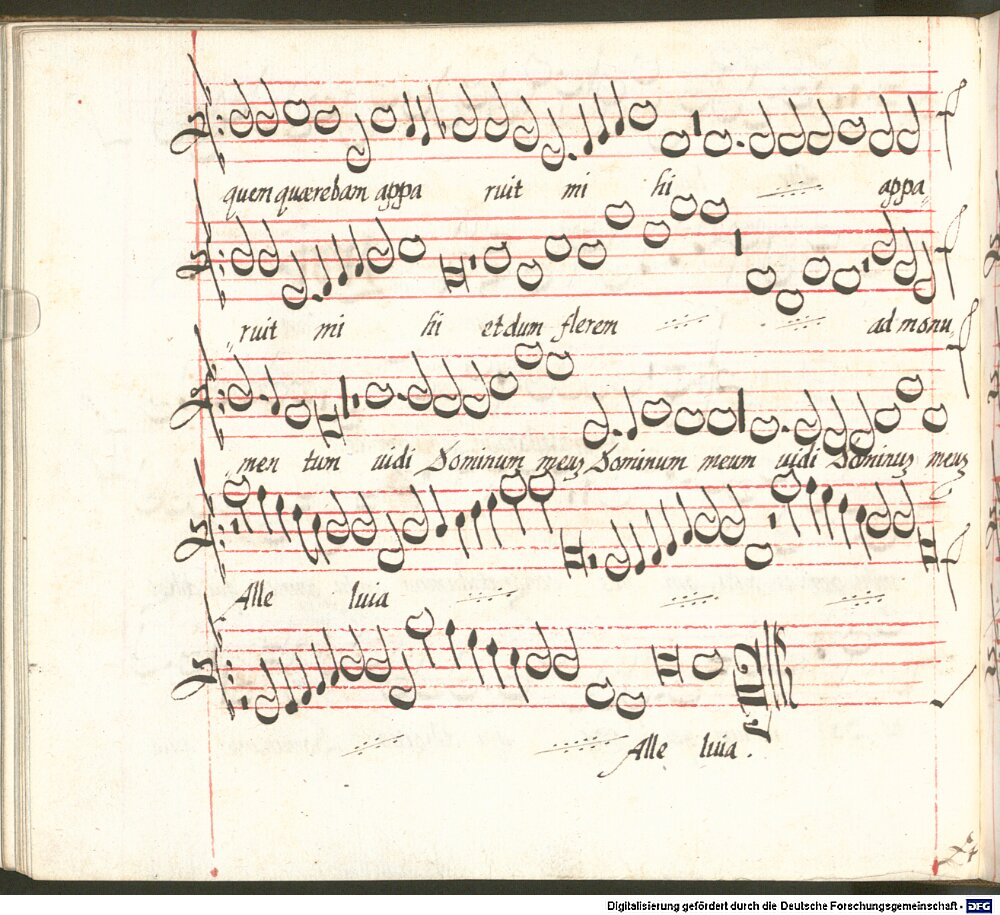 quem quærebam appa ruit mi hi appa
ruit mi hi et dum flerem ad monu
men tum uidi Dominum meuz Dominum meum uidi Dominuz meuz
Alle luia
Alle luia .
Digitalisierung gefördert durch die Deutsche Forschungsgemeinschaft - DFG